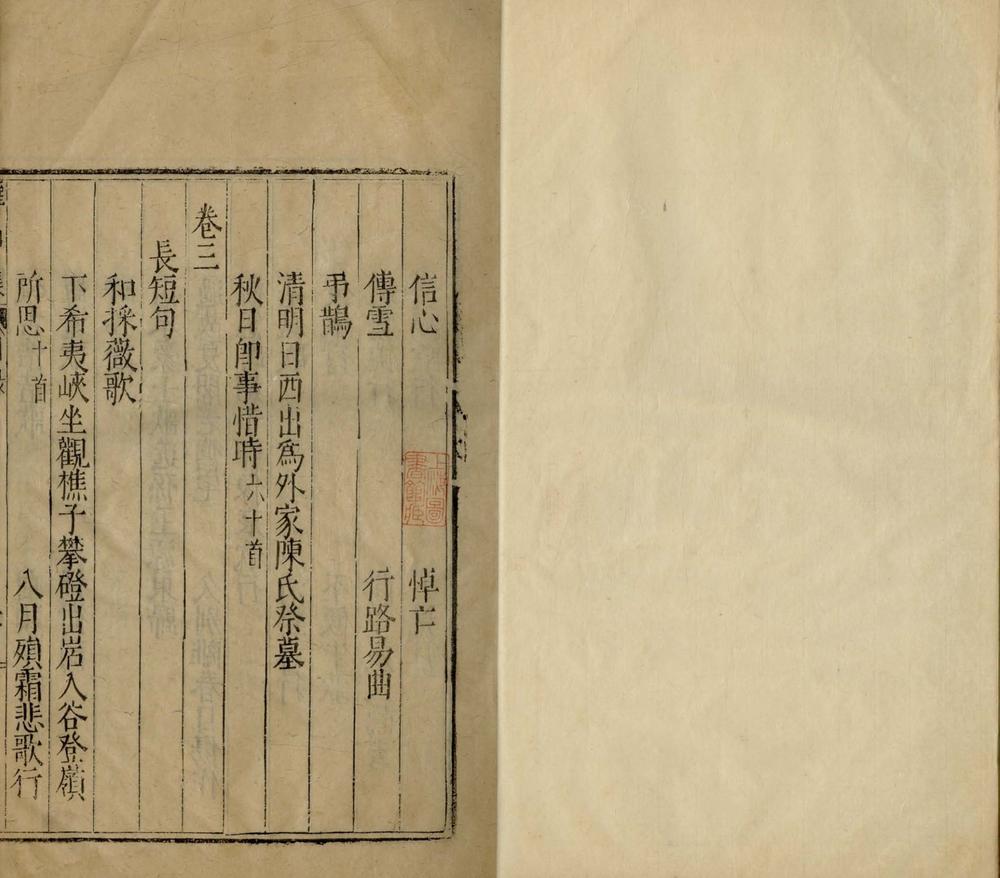 信心 悼亡
傳雪 行路易曲
弔鵲
清明日西出爲外家陳氏祭墓
秋日卽事惜時六十首
卷三
長短句
和採薇歌
下希夷峽坐觀樵子攀磴出岩入谷登嶺
所思十首 八月殞霜悲歌行
上海圖書館藏